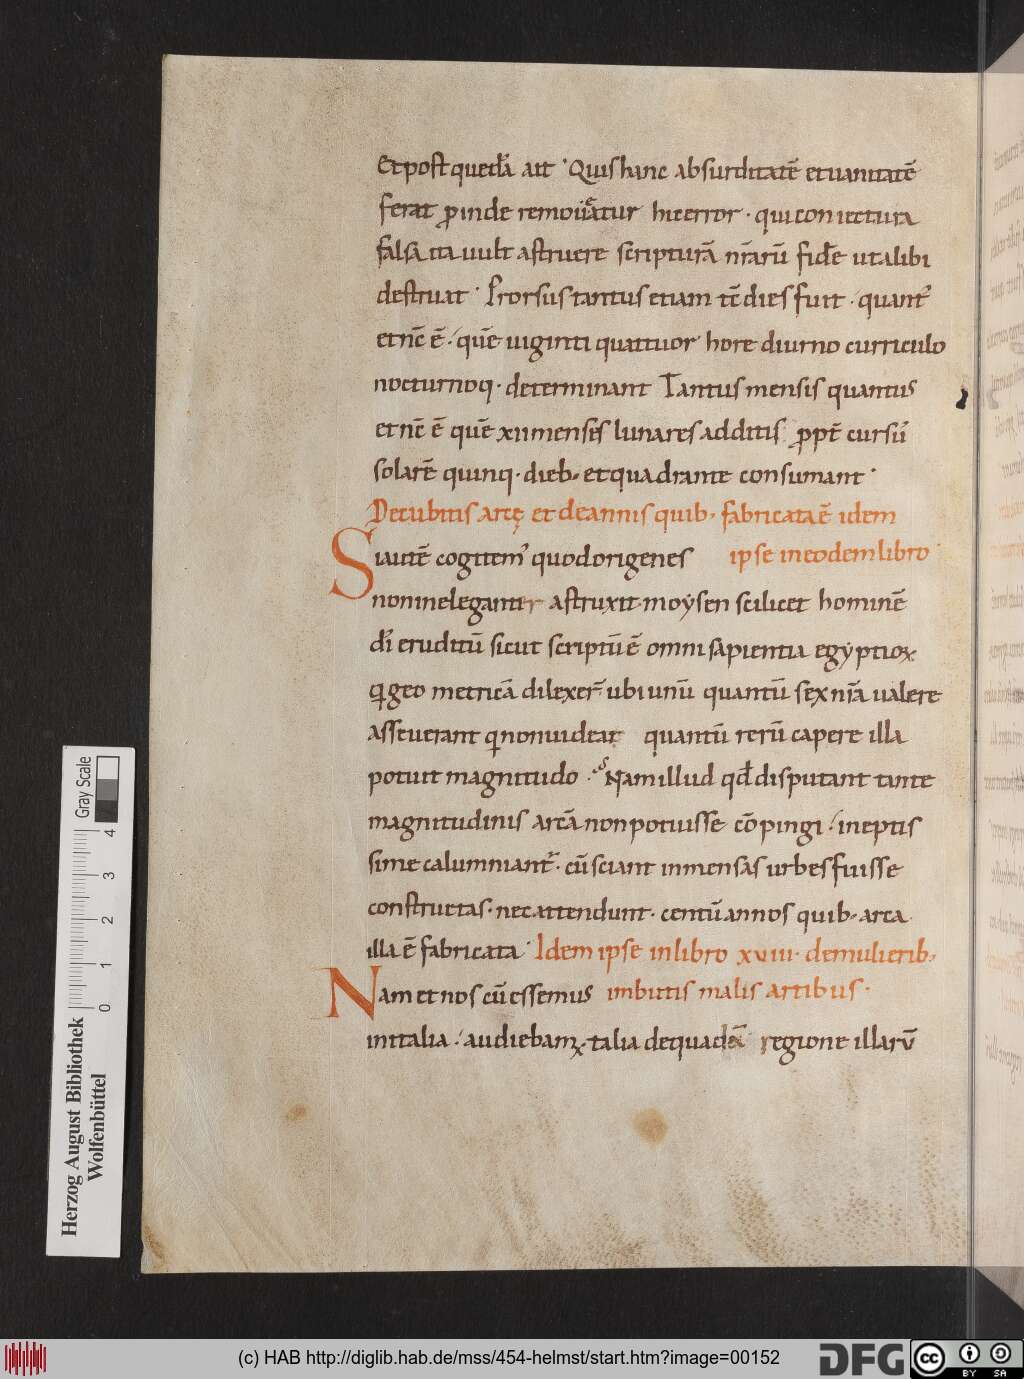 Et post quedā ait· Quis hanc absurditatē et uanitatē
ferat ꝓinde remoueatur hic error · qui coniectura
falsa ita uult astruere scripturā nr̄arū fidē ut alibi
destruat· Prorsus tantus etiam tc̄ dies fuit · quant᾽
et nc̄ ē · quē uiginti quattuor hore diurno curriculo
nocturnoq· determinant Tantus mensis quantus
et nc̄ ē quē xii menses lunares additis ꝓpt̄ cursū
solarē quinq· dieb· et quadrante consumant·
De cubitis arcę et de annis quib· fabricata ē idem
ipse in eodem libro·
Si autē cogitem᾽ quod origenes
non ineleganter astruxit· moẏsen scilicet hominē
dī eruditū sicut scriptū ē omni sapientia egẏptioꝝ
ꝗ geometricā dilexer̄ ubi unū quantū sex nr̄a ualere
asseuerant ꝗ non uideat quantū rerū capere illa
potuit magnitudo · Nam illud qd̄ disputant tante
magnitudinis arcā non potuisse cōpingi · ineptis
sime calumniant᾽· cū sciant inmensas urbes fuisse
constructas· nec attendunt· centū annos quib· arca
illa ē fabricata· Idem ipse in libro xviii· de mulierib·
imbutis malis artibus·
Nam et nos cū essemus
in italia · audiebam᾽· talia de quadā regione illarū
Gray Scale
4
3
2
1
0
Herzog August Bibliothek
Wolfenbüttel
(c) HAB http://diglib.hab.de/mss/454-helmst/start.htm?image=00152
DFG
cc BY SA